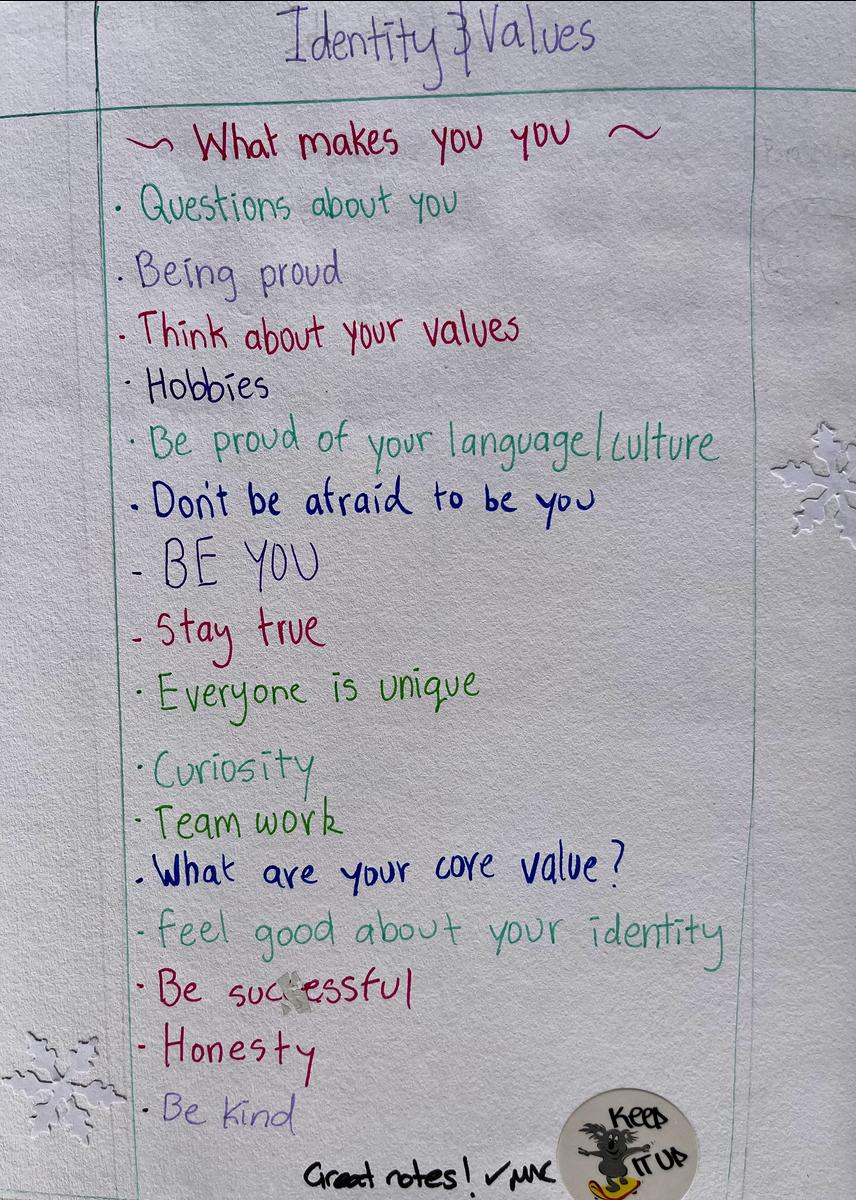 Identity & Values
~ What makes you you ~
· Questions about you
· Being proud
· Think about your values
· Hobbies
· Be proud of your language/culture
· Don't be afraid to be you
- BE YOU
- Stay true
· Everyone is unique
· Curiosity
· Team work
· What are your core value?
- feel good about your identity
· Be successful
- Honesty
· Be kind
Great notes! ✓
KEEP
IT UP